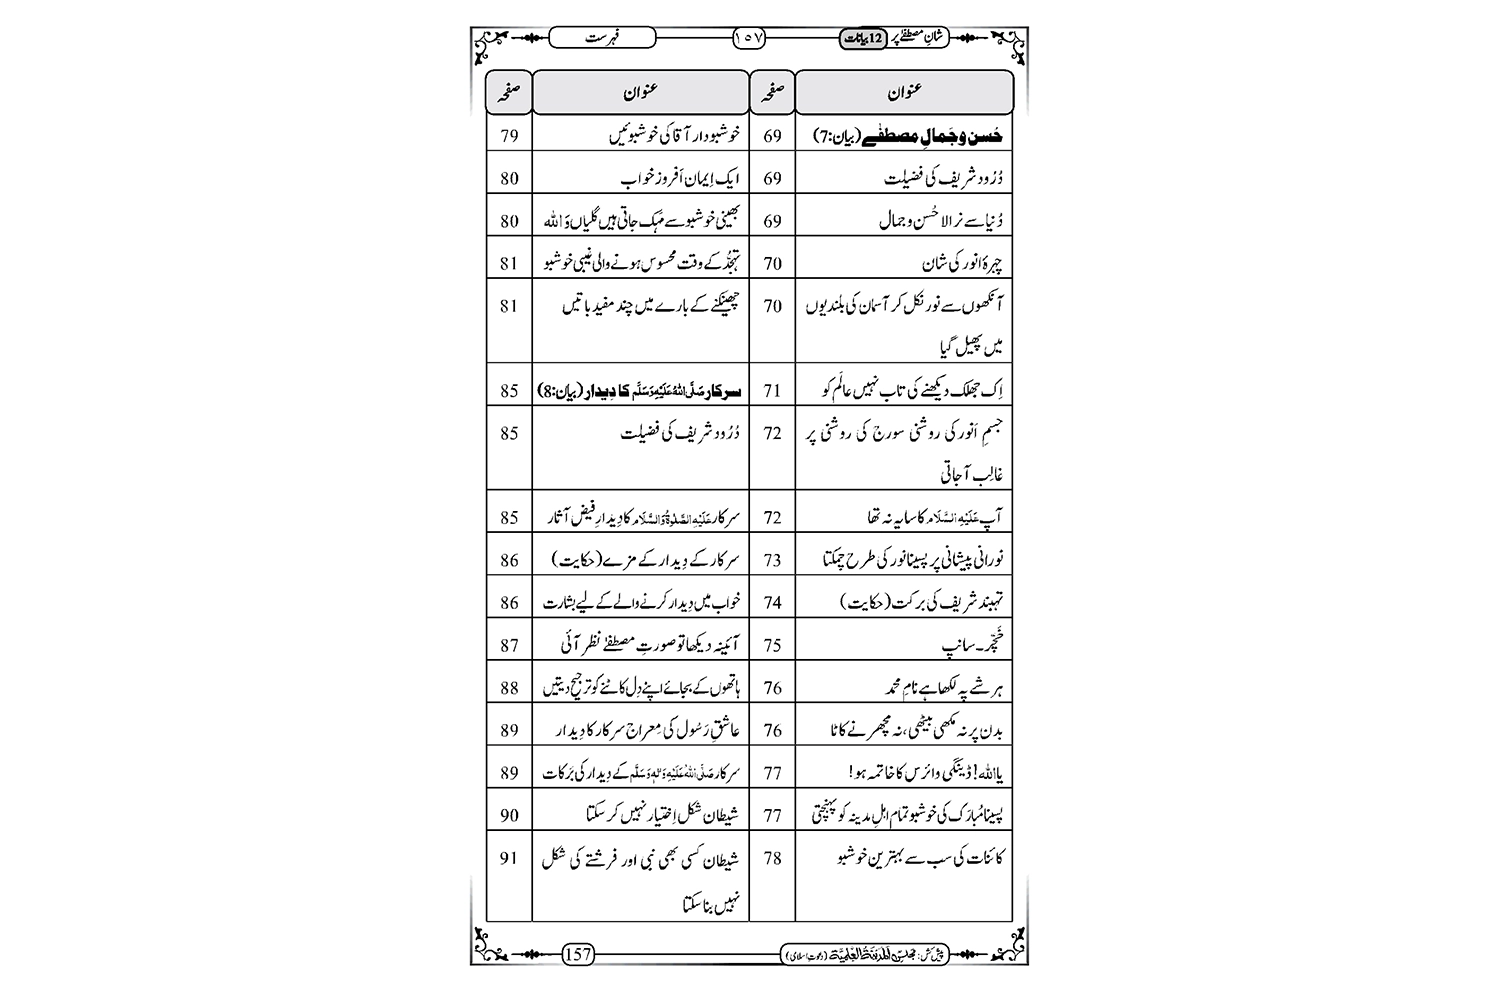 شانِ مصطفےٰ پر 12 بیانات ١٥٧ فہرست
عنوان صفحہ عنوان صفحہ
حُسن و جَمالِ مصطفٰے (بیان:7) 69 خوشبودار آقا کی خوشبوئیں 79
دُرُود شریف کی فضیلت 69 ایک اِیمان اَفروز خواب 80
دُنیا سے نرالا حُسن و جمال 69 بھینی خوشبو سے مَہک جاتی ہیں گلیاں وَاللہ 80
چہرۂ انور کی شان 70 تہجُّد کے وقت محسوس ہونے والی غیبی خوشبو 81
آنکھوں سے نور نکل کر آسمان کی بلندیوں 70 چھینکنے کے بارے میں چند مفید باتیں 81
میں پھیل گیا
اِک جھلک دیکھنے کی تاب نہیں عالَم کو 71 سرکار صَلَّی اللہُ عَلَیْہِ وَسَلَّم کا دِیدار (بیان:8) 85
جسمِ اَنور کی روشنی سورج کی روشنی پر 72 دُرُود شریف کی فضیلت 85
غالِب آجاتی
آپ عَلَیْہِ السَّلَام کا سایہ نہ تھا 72 سرکار عَلَیْہِ الصَّلٰوۃُ وَالسَّلَام کا دِیدارِ فیض آثار 85
نورانی پیشانی پر پسینا نور کی طرح چمکتا 73 سرکار کے دِیدار کے مزے (حکایت) 86
تہبند شریف کی برکت (حکایت) 74 خواب میں دِیدار کرنے والے کے لیے بشارت 86
خَچّر۔ سانپ 75 آئینہ دیکھا تو صورتِ مصطفےٰ نظر آئی 87
ہر شے پہ لکھا ہے نامِ محمد 76 ہاتھوں کے بجائے اپنے دِل کاٹنے کو ترجیح دیتیں 88
بدن پر نہ مکھی بیٹھی، نہ مچھر نے کاٹا 76 عاشقِ رَسُول کی مِعراج سرکار کا دِیدار 89
یا اللہ! ڈینگی وائرس کا خاتمہ ہو! 77 سرکار صَلَّی اللہُ عَلَیْہِ وَاٰلِہٖ وَسَلَّم کے دِیدار کی بَرَکات 89
پسینا مُبارَک کی خوشبو تمام اہلِ مدینہ کو پہنچتی 77 شیطان شکل اِختیار نہیں کر سکتا 90
کائنات کی سب سے بہترین خوشبو 78 شیطان کسی بھی نبی اور فرشتے کی شکل 91
نہیں بنا سکتا
پیش کش: مجلس اَلْمَدِیْنَۃُ الْعِلْمِیَّۃ (دعوت اسلامی) 157